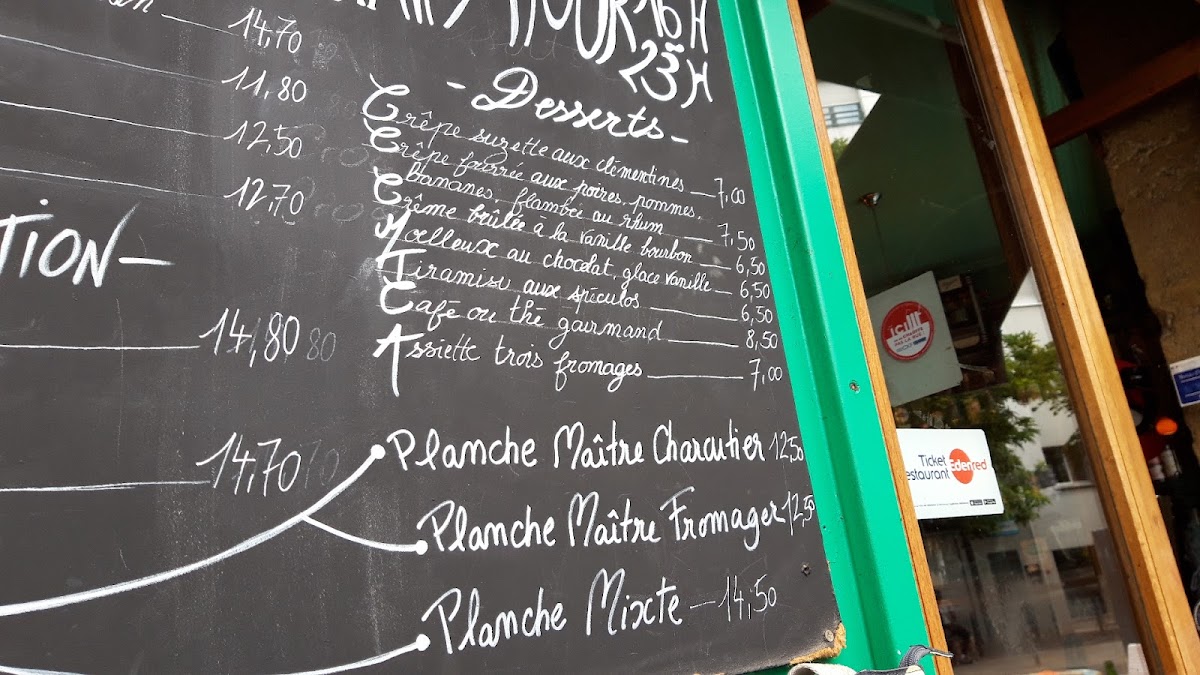 14,70
11,80
12,50
12,70
TION-
14,80
14,70
HAPPY HOUR 16H
23H
- Desserts -
Crêpe suzette aux clémentines 7,00
Crêpe fourrée aux poires, pommes,
bananes, flambée au rhum 7,50
Crème brûlée à la vanille bourbon 6,50
Moelleux au chocolat, glace vanille 6,50
Tiramisu aux spéculos 6,50
Café ou thé gourmand 8,50
Assiette trois fromages 7,00
Planche Maître Charcutier 12,50
Planche Maître Fromager 12,50
Planche Mixte 14,50
Ticket
Restaurant
Edenred